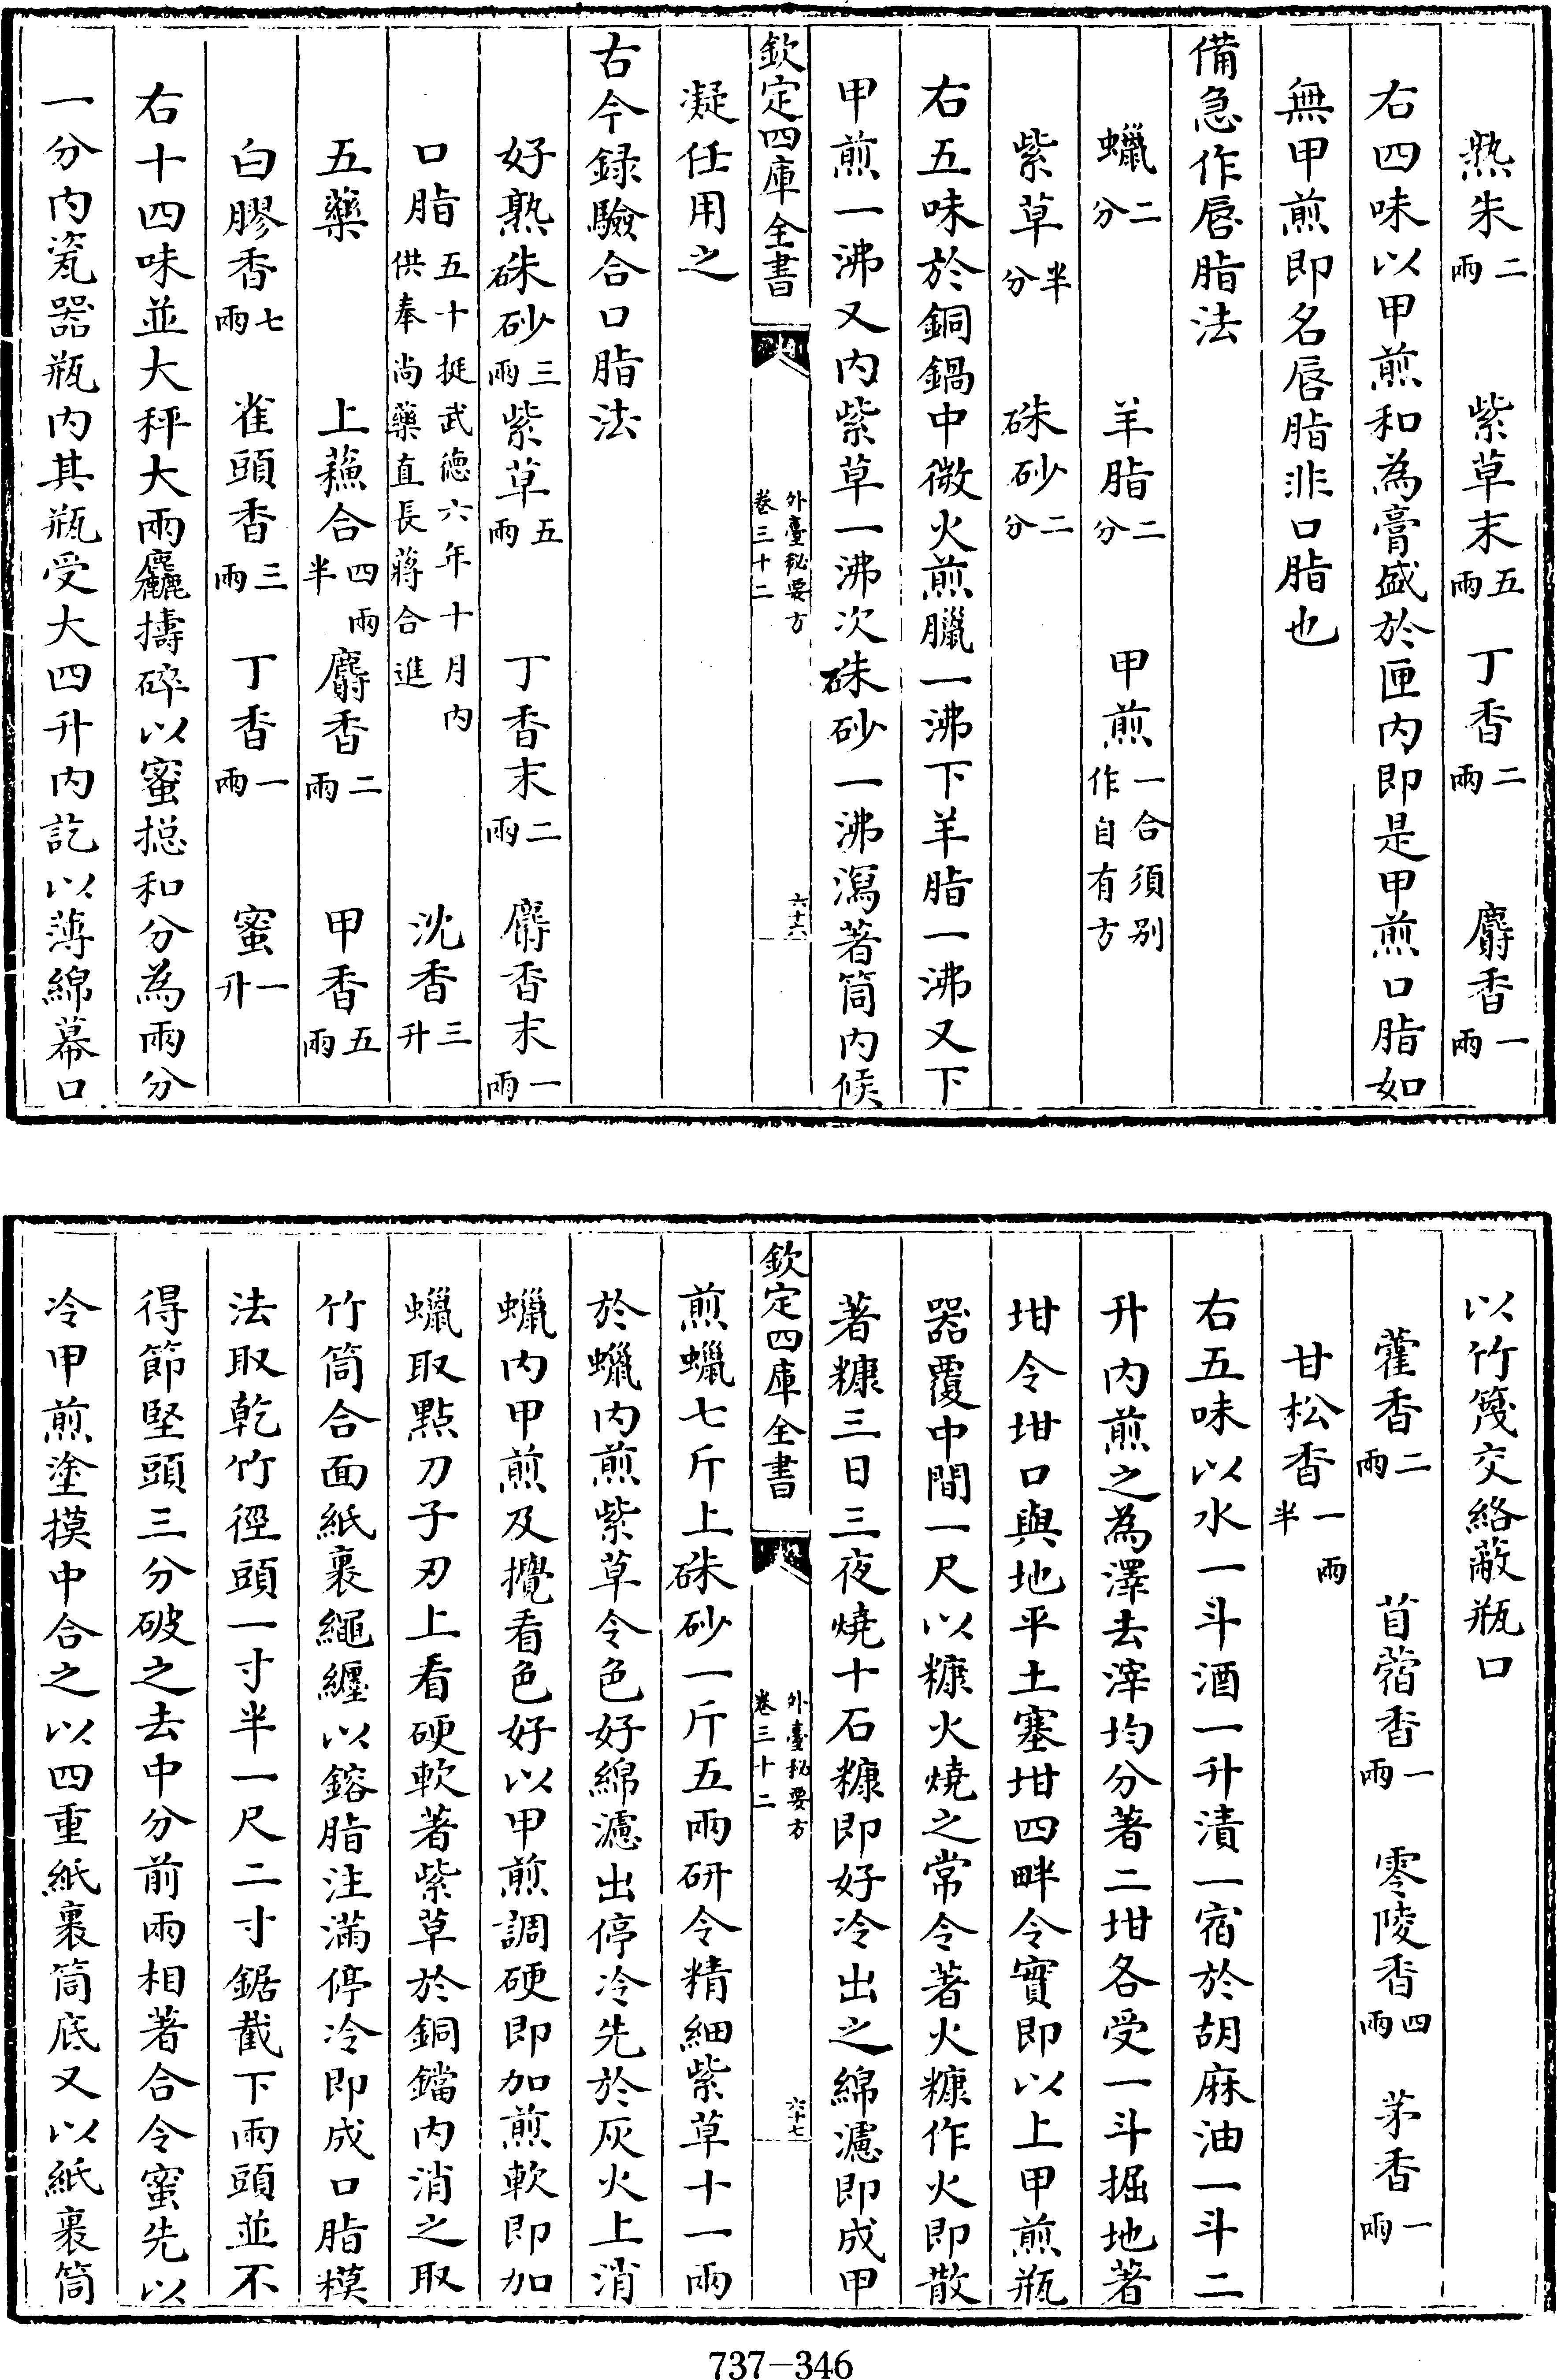 熟朱二兩 紫草末五兩 丁香二兩 麝香一兩
右四味以甲煎和為膏盛於匣內即是甲煎口脂如
無甲煎即名唇脂非口脂也
備急作唇脂法
蠟二分 羊脂二分 甲煎一合須別作自有方
紫草半分 硃砂二分
右五味於銅鍋中微火煎臘一沸下羊脂一沸又下
甲煎一沸又內紫草一沸次硃砂一沸瀉著筒內候
欽定四庫全書 外臺秘要方卷三十二 六十六
凝任用之
古今録驗合口脂法
好熟硃砂三兩 紫草五兩 丁香末二兩 麝香末一兩
口脂五十挺武德六年十月內供奉尚藥直長蔣合進 沈香三升
五藥 上蘓合四兩半 麝香二兩 甲香五兩
白膠香七兩 雀頭香三兩 丁香一兩 蜜一升
右十四味並大秤大兩麤擣碎以蜜搃和分為兩分
一分內瓷器瓶內其瓶受大四升內訖以薄綿幕口
以竹篾交絡蔽瓶口
藿香二兩 苜蓿香一兩 零陵香四兩 茅香一兩
甘松香一兩半
右五味以水一斗酒一升漬一宿於胡麻油一斗二
升內煎之為澤去滓均分著二坩各受一斗掘地著
坩令坩口與地平土塞坩四畔令實即以上甲煎瓶
器覆中間一尺以糠火燒之常令著火糠作火即散
著糠三日三夜燒十石糠即好冷出之綿濾即成甲
欽定四庫全書 外臺秘要方卷三十二 六十七
煎蠟七斤上硃砂一斤五兩研令精細紫草十一兩
於蠟內煎紫草令色好綿濾出停冷先於灰火上消
蠟內甲煎及攪看色好以甲煎調硬即加煎軟即加
蠟取點刀子刃上看硬軟著紫草於銅鐺內消之取
竹筒合面紙裹繩纏以鎔脂注滿停冷即成口脂模
法取乾竹徑頭一寸半一尺二寸鋸截下兩頭並不
得節堅頭三分破之去中分前兩相著合令蜜先以
冷甲煎塗摸中合之以四重紙裹筒底又以紙裹筒
737-346